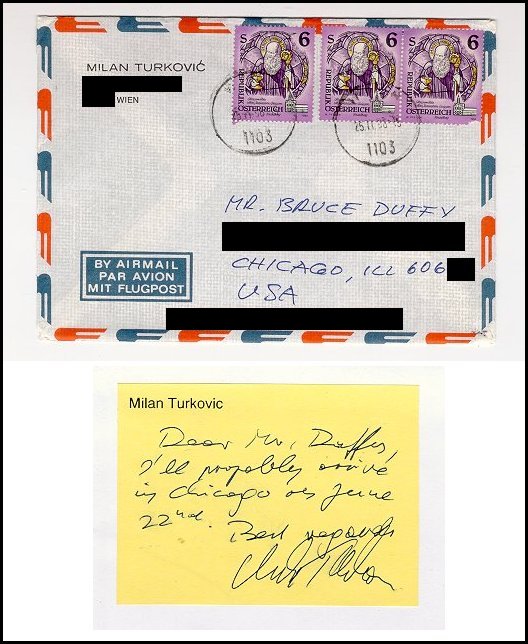 MILAN TURKOVIĆ
WIEN
6 6 6
REPUBLIK
ÖSTERREICH
REPUBLIK
ÖSTERREICH
REPUBLIK
ÖSTERREICH
1103
1103
MR. BRUCE DUFFY
CHICAGO, ILL 606
USA
BY AIRMAIL
PAR AVION
MIT FLUGPOST
Milan Turkovic
Dear Mr. Duffy,
I'll propably arrive
in Chicago on June
22nd. Best regards